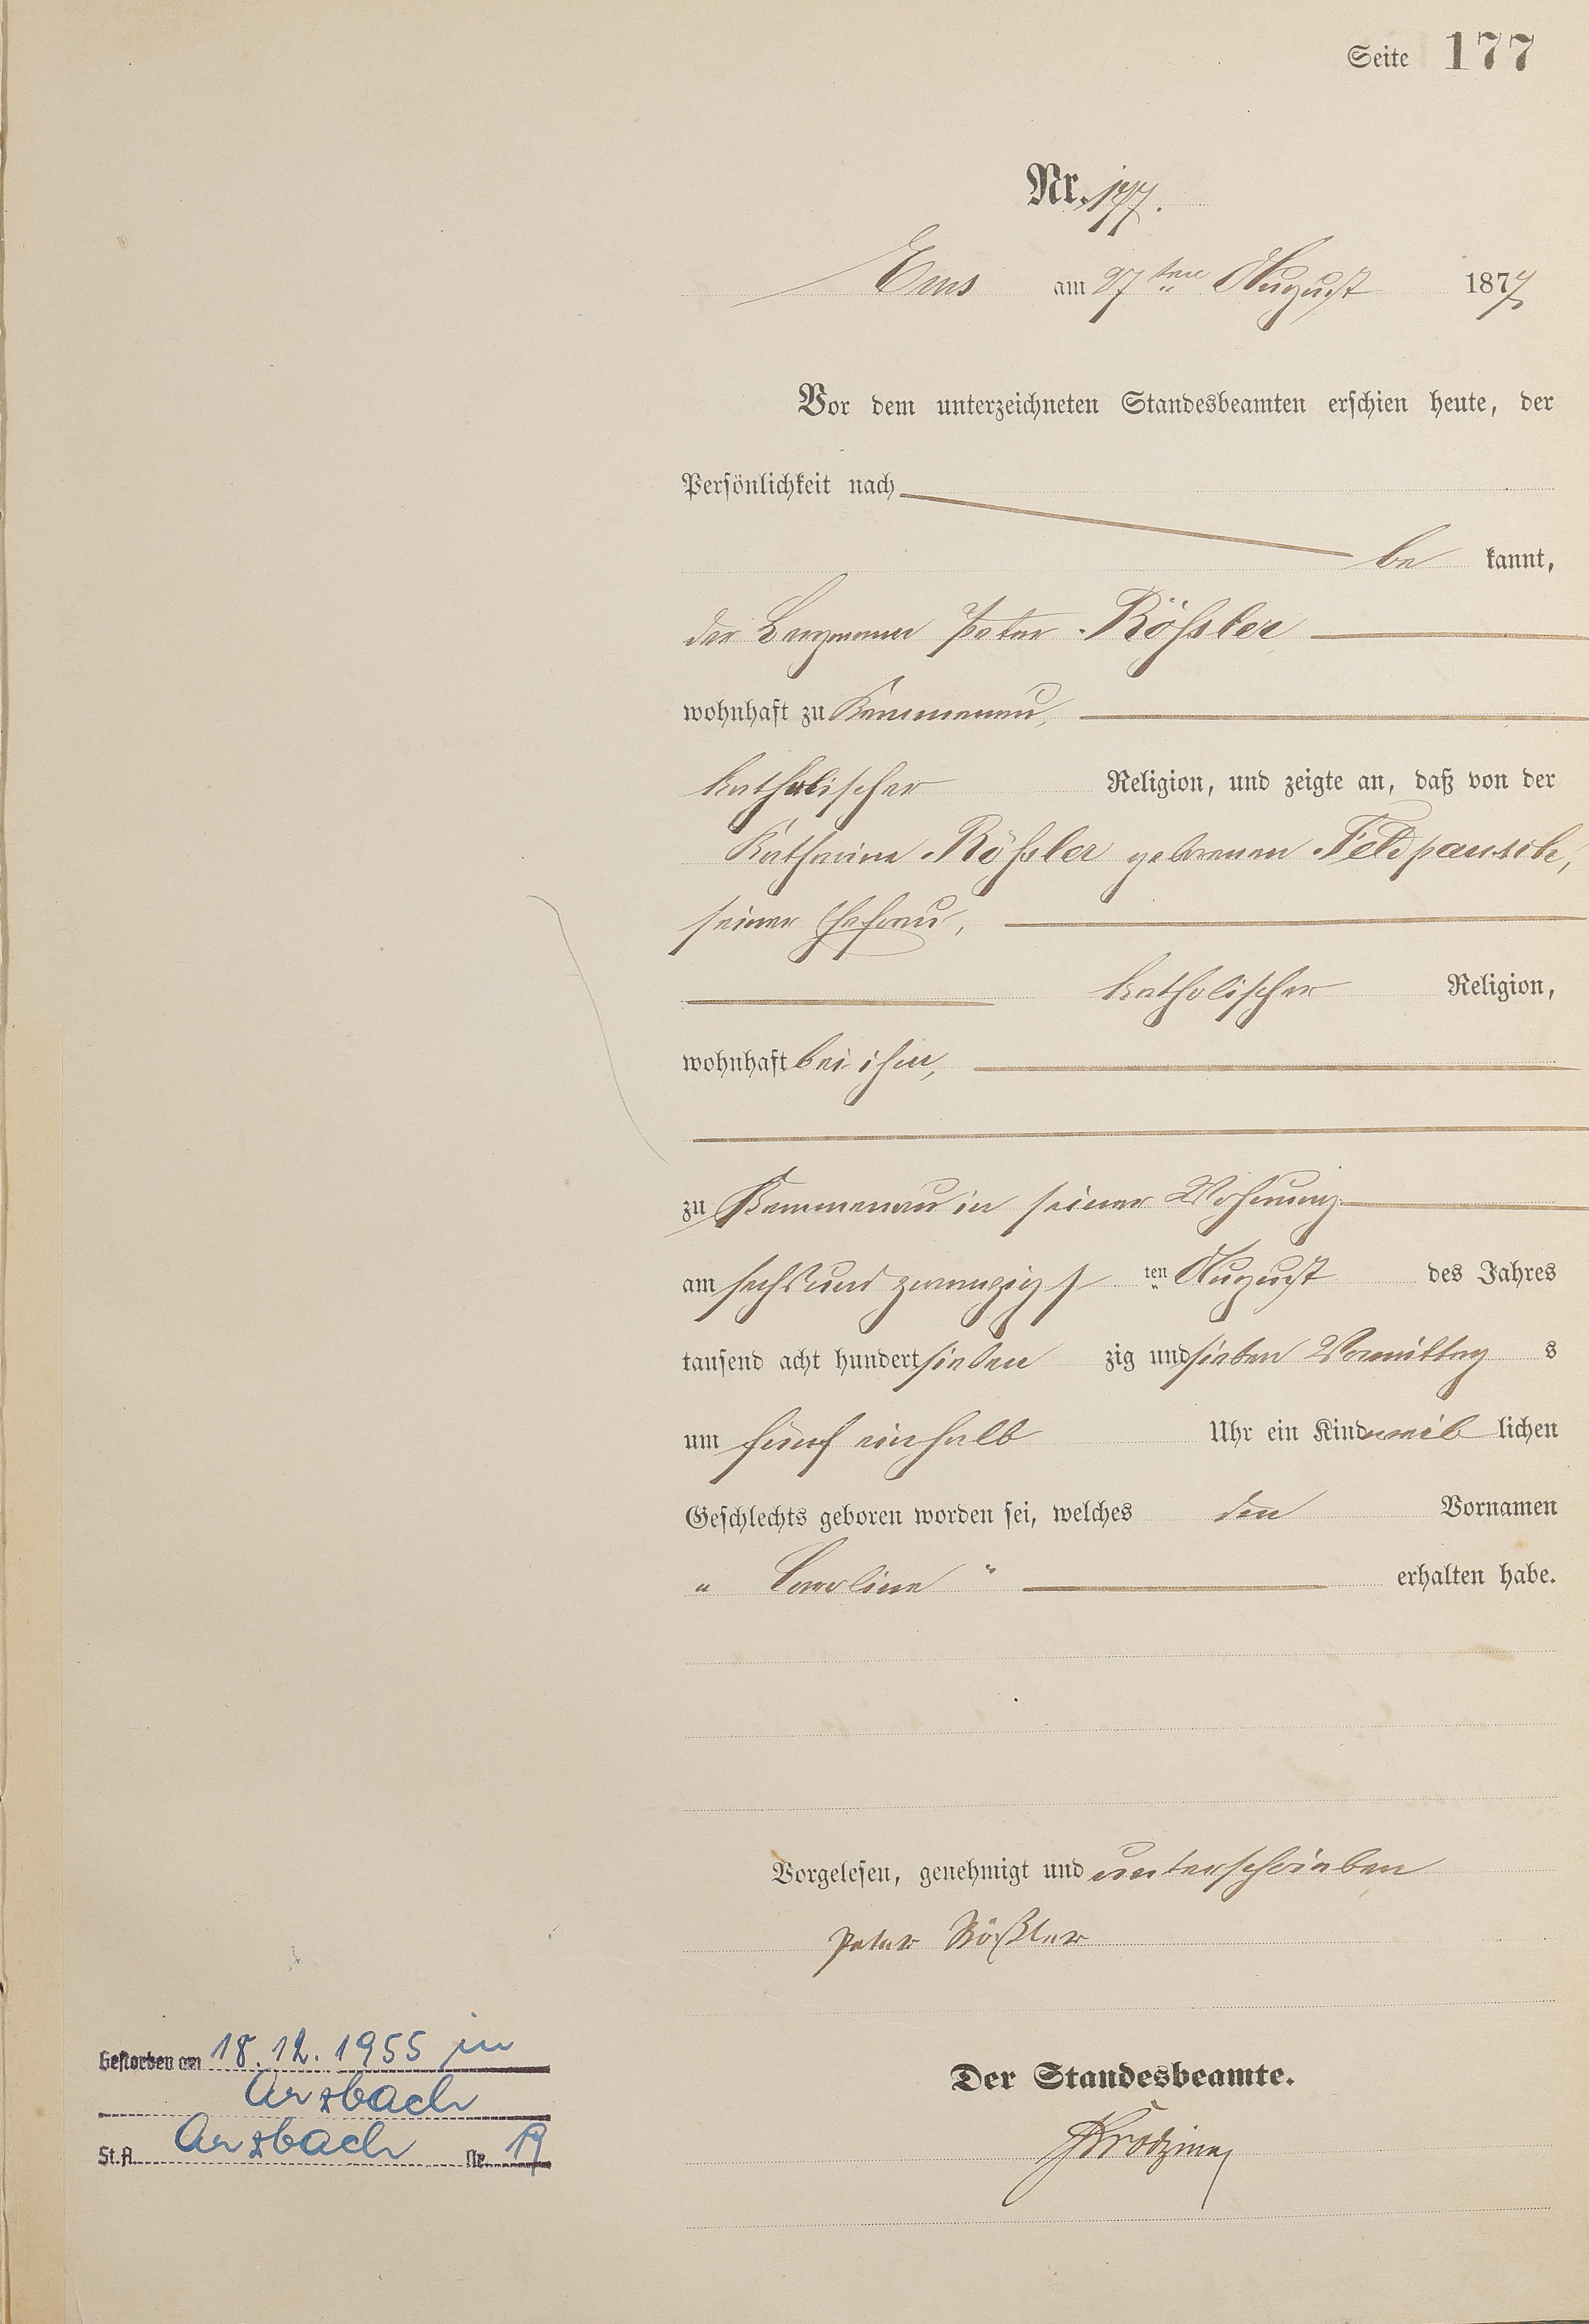 Seite 177
Nr. 177.
Ems am 27ten August 1877
Vor dem unterzeichneten Standesbeamten erschien heute, der
Persönlichkeit nach
be kannt,
der Bergmann Peter Rößler
wohnhaft zu Kemmenau,
katholischer Religion, und zeigte an, daß von der
Katharina Rößler geborenen Feldpausch,
seiner Ehefrau,
katholischer Religion,
wohnhaft bei ihm,
zu Kemmenau in seiner Wohnung
am sechs und zwanzigsten August des Jahres
tausend acht hundert sieben zig und sieben Vormittag s
um fünf einhalb Uhr ein Kind weib lichen
Geschlechts geboren worden sei, welches den Vornamen
" Carolina " erhalten habe.
Vorgelesen, genehmigt und unterschrieben
Peter Rößler
Der Standesbeamte.
Gestorben am 18.12.1955 in
Arzbach
St.A. Arzbach Nr. 19